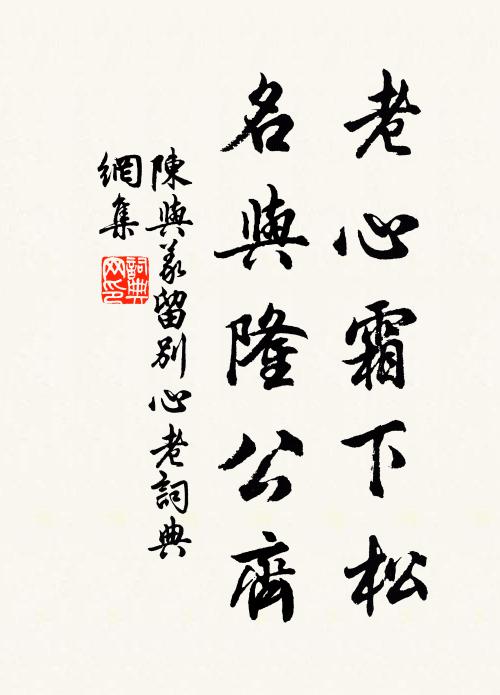 老心霜下松
名與隆公齊
陳與義留別心老詞典
網集
詞典
网印